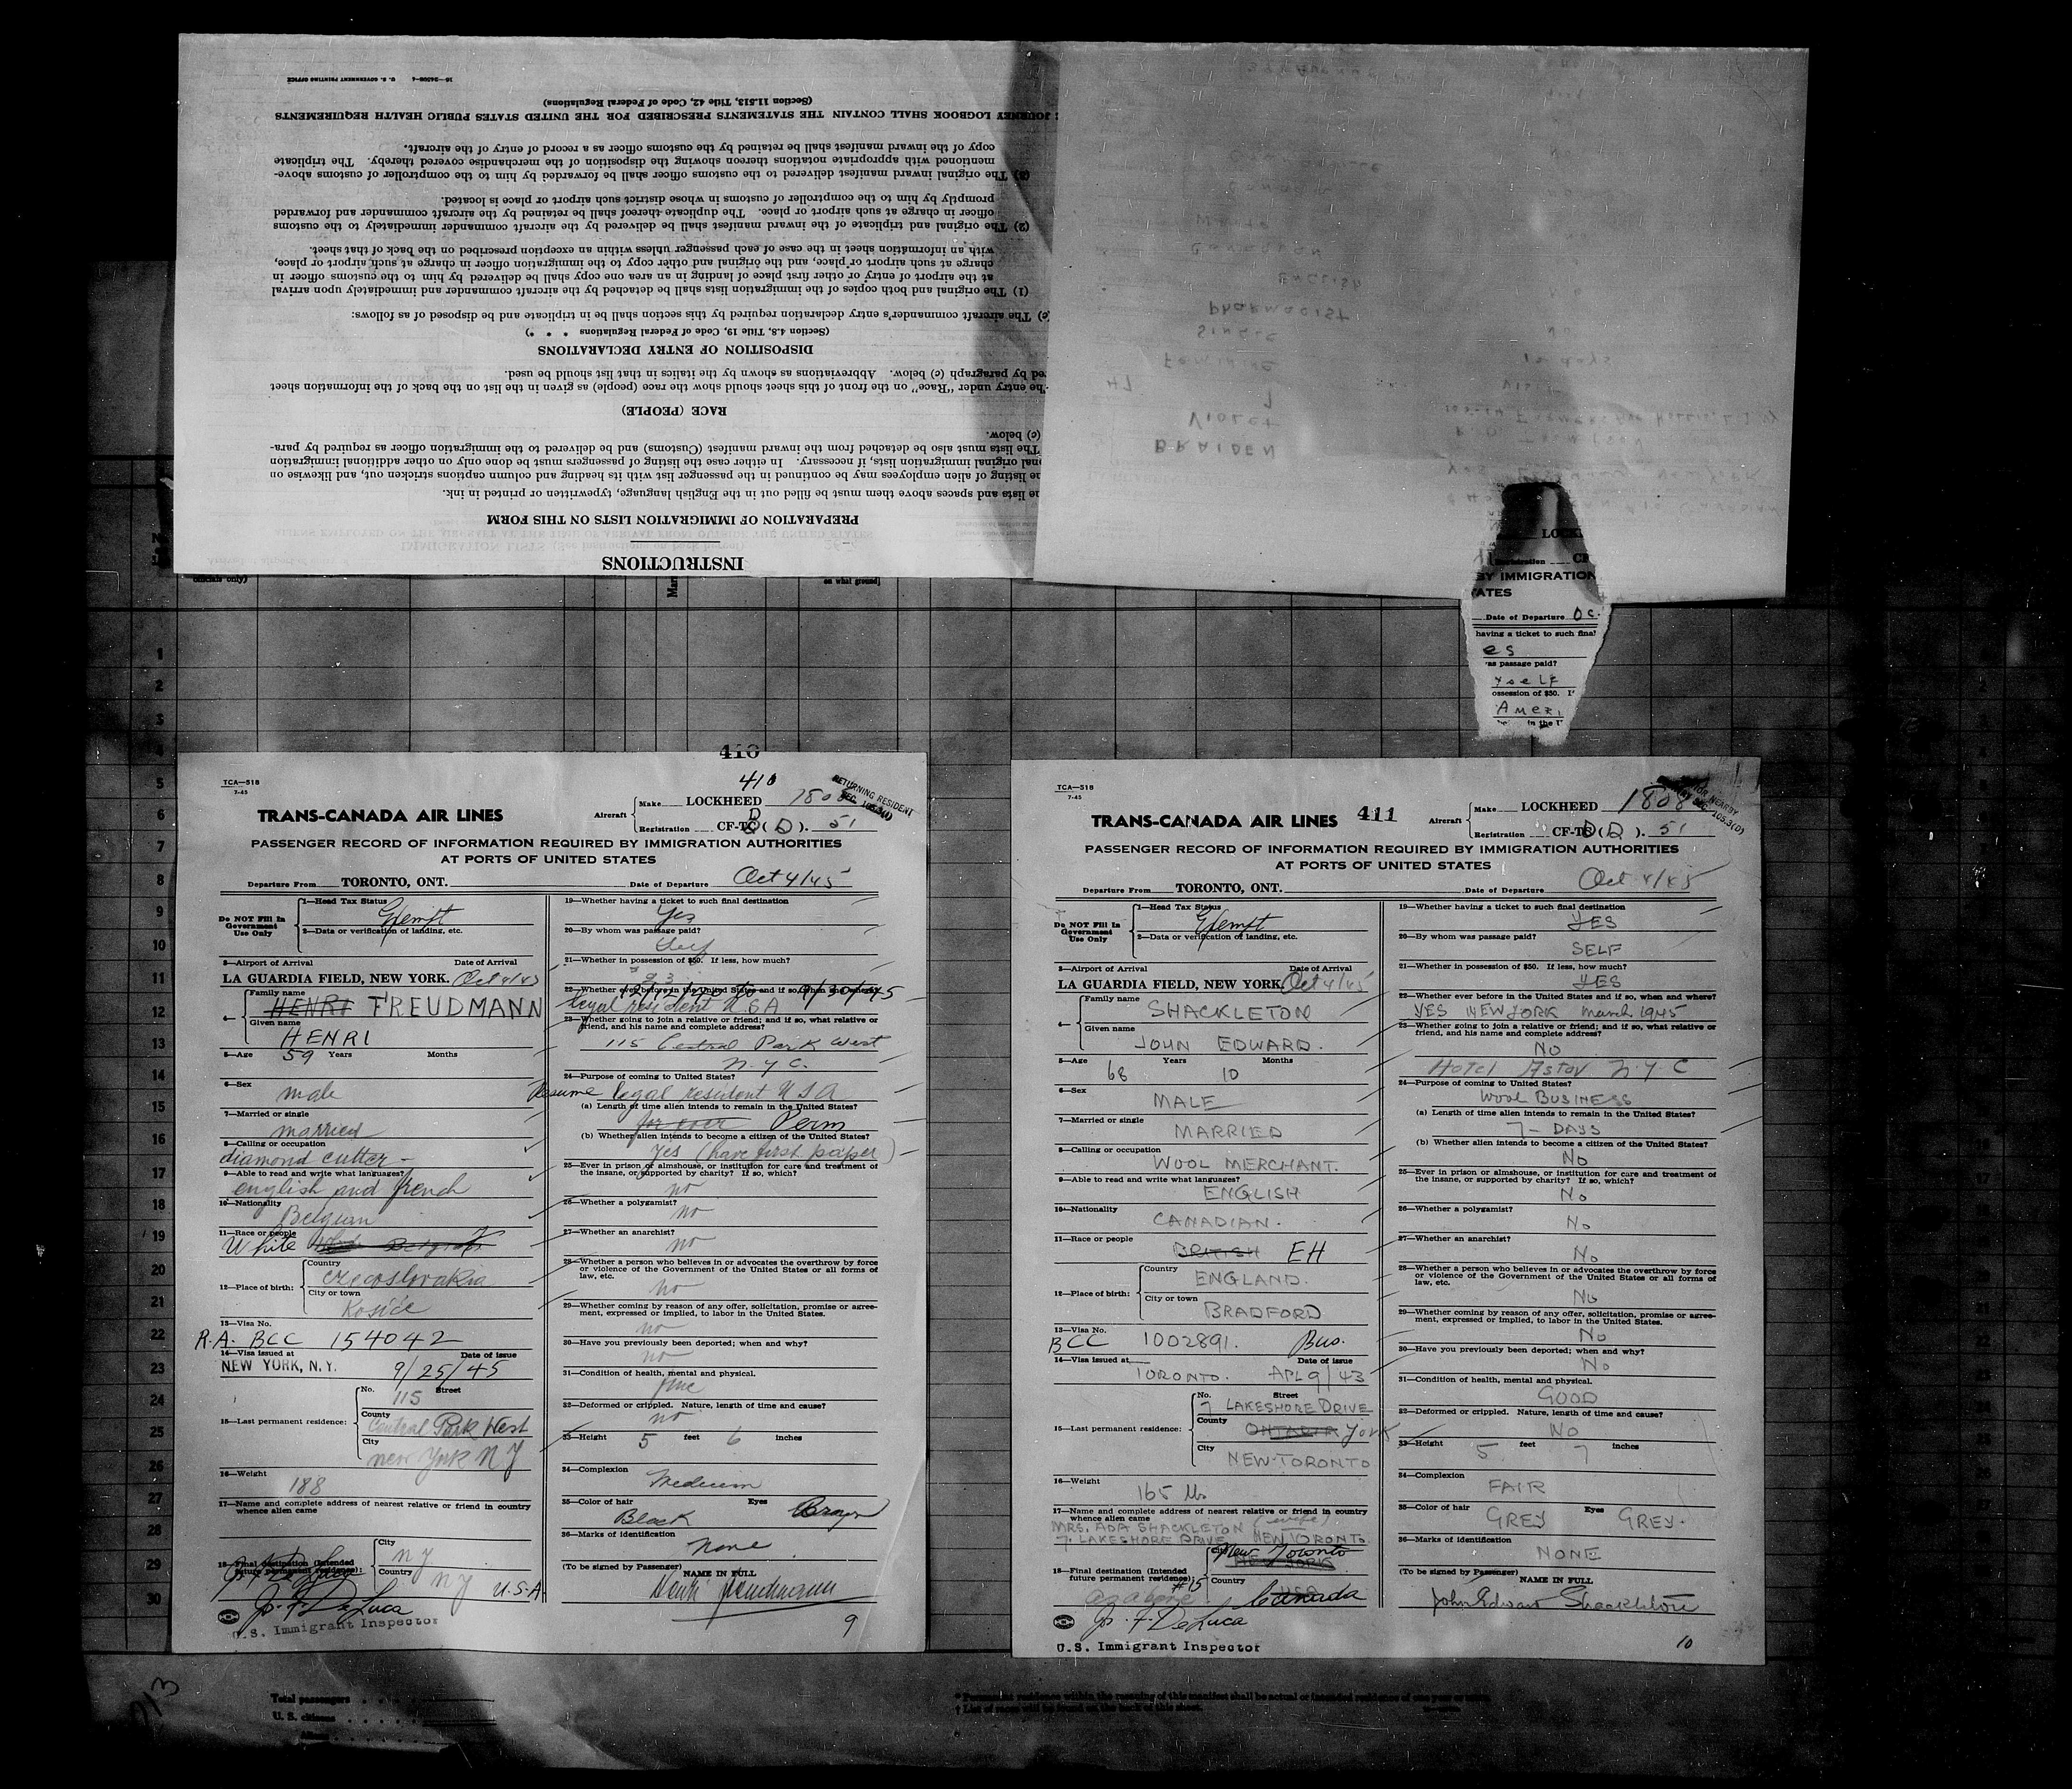 INSTRUCTIONS
PREPARATION OF IMMIGRATION LISTS ON THIS FORM
he lists and spaces above them must be filled out in the English language, typewritten or printed in ink.
he listing of alien employees may be continued in the passenger list with its heading and column captions stricken out, and likewise on
nal original immigration lists, if necessary. In either case the listing of passengers must be done only on other additional immigration
The lists must also be detached from the inward manifest (Customs) and be delivered to the immigration officer as required by para-
(c) below.
RACE (PEOPLE)
The entry under "Race" on the front of this sheet should show the race (people) as given in the list on the back of the information sheet
ed by paragraph (c) below. Abbreviations as shown by the italics in that list should be used.
DISPOSITION OF ENTRY DECLARATIONS
(Section 4.8, Title 19, Code of Federal Regulations * * *)
(c) The aircraft commander's entry declaration required by this section shall be in triplicate and be disposed of as follows:
(1) The original and both copies of the immigration lists shall be detached by the aircraft commander and immediately upon arrival
at the airport of entry or other first place of landing in an area one copy shall be delivered by him to the customs officer in
charge at such airport or place, and the original and other copy to the immigration officer in charge at such airport or place,
with an information sheet in the case of each passenger unless within an exception prescribed on the back of that sheet.
(2) The original and triplicate of the inward manifest shall be delivered by the aircraft commander immediately to the customs
officer in charge at such airport or place. The duplicate thereof shall be retained by the aircraft commander and forwarded
promptly by him to the comptroller of customs in whose district such airport or place is located.
(3) The original inward manifest delivered to the customs officer shall be forwarded by him to the comptroller of customs above-
mentioned with appropriate notations thereon showing the disposition of the merchandise covered thereby. The triplicate
copy of the inward manifest shall be retained by the customs officer as a record of entry of the aircraft.
JOURNEY LOGBOOK SHALL CONTAIN THE STATEMENTS PRESCRIBED FOR THE UNITED STATES PUBLIC HEALTH REQUIREMENTS
(Section 11.513, Title 42, Code of Federal Regulations)
U. S. GOVERNMENT PRINTING OFFICE
BRAIDEN
Violet
47
Feminine
Single
Pharmacist
English
LOCKH
Registration CF
BY IMMIGRATION
ATES
Date of Departure Oc
having a ticket to such final
es
as passage paid?
yself
ossession of $50. I
Amer.
in the U
officials only)
on what ground)
1
2
3
4
5
6
7
8
9
10
11
12
13
14
15
16
17
18
19
20
21
22
23
24
25
26
27
28
29
30
410
TCA—518
7-45
410
RETURNING RESIDENT
SEC. 105.3(1)
TRANS-CANADA AIR LINES
Aircraft
Make LOCKHEED 1808
Registration CF-TC (D). 51
PASSENGER RECORD OF INFORMATION REQUIRED BY IMMIGRATION AUTHORITIES
AT PORTS OF UNITED STATES
Departure From TORONTO, ONT. Date of Departure Oct 4/45
Do NOT Fill In
Government
Use Only
1—Head Tax Status
Exempt
2—Data or verification of landing, etc.
3—Airport of Arrival Date of Arrival
LA GUARDIA FIELD, NEW YORK. Oct 4/45
4— Family name
HENRI FREUDMANN
Given name
HENRI
5—Age 59 Years Months
6—Sex
male
7—Married or single
married
8—Calling or occupation
diamond cutter -
9—Able to read and write what languages?
english and french
10—Nationality
Belgian
11—Race or people
White
12—Place of birth:
Country
czecoslovakia
City or town
Kosice
13—Visa No.
R.A. BCC 154042
14—Visa issued at Date of issue
NEW YORK, N.Y. 9/25/45
15—Last permanent residence:
No. Street
115
County
Central Park West
City
new York N Y
16—Weight
188
17—Name and complete address of nearest relative or friend in country
whence alien came
18—Final destination (Intended
future permanent residence):
City
N Y
Country
N Y U.S.A
J. F. DeLuca
U.S. Immigrant Inspector
19—Whether having a ticket to such final destination
Yes
20—By whom was passage paid?
Self
21—Whether in possession of $50. If less, how much?
22—Whether ever before in the United States and if so, when and where?
12/12/42 to 9/30/45
legal resident U.S A
23—Whether going to join a relative or friend; and if so, what relative or
friend, and his name and complete address?
115 Central Park West
N. Y C.
24—Purpose of coming to United States?
Resume legal resident U S A
(a) Length of time alien intends to remain in the United States?
for ever Perm
(b) Whether alien intends to become a citizen of the United States?
Yes (have first paper)
25—Ever in prison or almshouse, or institution for care and treatment of
the insane, or supported by charity? If so, which?
no
26—Whether a polygamist?
no
27—Whether an anarchist?
no
28—Whether a person who believes in or advocates the overthrow by force
or violence of the Government of the United States or all forms of
law, etc.
no
29—Whether coming by reason of any offer, solicitation, promise or agree-
ment, expressed or implied, to labor in the United States.
no
30—Have you previously been deported; when and why?
no
31—Condition of health, mental and physical.
fine
32—Deformed or crippled. Nature, length of time and cause?
no
33—Height 5 feet 6 inches
34—Complexion
Medium
35—Color of hair Eyes
Black Brown
36—Marks of identification
none
(To be signed by Passenger) NAME IN FULL
Henri Freudmann
9
TCA—518
7-45
TRANS-CANADA AIR LINES 411
Aircraft
Make LOCKHEED 1808
Registration CF-TC (D). 51
VISITOR NEARBY
SEC. 105.3(D)
PASSENGER RECORD OF INFORMATION REQUIRED BY IMMIGRATION AUTHORITIES
AT PORTS OF UNITED STATES
Departure From TORONTO, ONT. Date of Departure Oct 4/45
Do NOT Fill In
Government
Use Only
1—Head Tax Status
Exempt
2—Data or verification of landing, etc.
3—Airport of Arrival Date of Arrival
LA GUARDIA FIELD, NEW YORK. Oct 4/45
4— Family name
SHACKLETON
Given name
JOHN EDWARD.
5—Age Years Months
68 10
6—Sex
MALE
7—Married or single
MARRIED
8—Calling or occupation
WOOL MERCHANT.
9—Able to read and write what languages?
ENGLISH
10—Nationality
CANADIAN.
11—Race or people
BRITISH EH
12—Place of birth:
Country
ENGLAND.
City or town
BRADFORD
13—Visa No.
BCC 1002891. Bus.
14—Visa issued at Date of issue
TORONTO. APL 9/43
15—Last permanent residence:
No. Street
7 LAKESHORE DRIVE
County
ONTARIO York
City
NEW-TORONTO
16—Weight
165 lbs
17—Name and complete address of nearest relative or friend in country
whence alien came
MRS. ADA SHACKLETON (wife)
7 LAKESHORE DRIVE NEW TORONTO
18—Final destination (Intended
future permanent residence):
City
New Toronto
NEW YORK
Country
USA
Canada
as above #15
J. F DeLuca
U.S. Immigrant Inspector
19—Whether having a ticket to such final destination
YES
20—By whom was passage paid?
SELF
21—Whether in possession of $50. If less, how much?
YES
22—Whether ever before in the United States and if so, when and where?
YES NEW YORK March 1945
23—Whether going to join a relative or friend; and if so, what relative or
friend, and his name and complete address?
NO
Hotel Astor N.Y C
24—Purpose of coming to United States?
WOOL BUSINESS
(a) Length of time alien intends to remain in the United States?
7 - DAYS
(b) Whether alien intends to become a citizen of the United States?
No
25—Ever in prison or almshouse, or institution for care and treatment of
the insane, or supported by charity? If so, which?
No
26—Whether a polygamist?
No
27—Whether an anarchist?
No
28—Whether a person who believes in or advocates the overthrow by force
or violence of the Government of the United States or all forms of
law, etc.
No
29—Whether coming by reason of any offer, solicitation, promise or agree-
ment, expressed or implied, to labor in the United States.
No
30—Have you previously been deported; when and why?
No
31—Condition of health, mental and physical.
GOOD
32—Deformed or crippled. Nature, length of time and cause?
No
33—Height 5 feet 7 inches
34—Complexion
FAIR
35—Color of hair Eyes
GREY GREY.
36—Marks of identification
NONE
(To be signed by Passenger)
NAME IN FULL
John Edward Shackleton
10
Total passengers
U. S. citizens
Aliens
* Permanent residence within the meaning of this manifest shall be actual or intended residence of one year or more.
† List of races will be found on the back of this sheet.